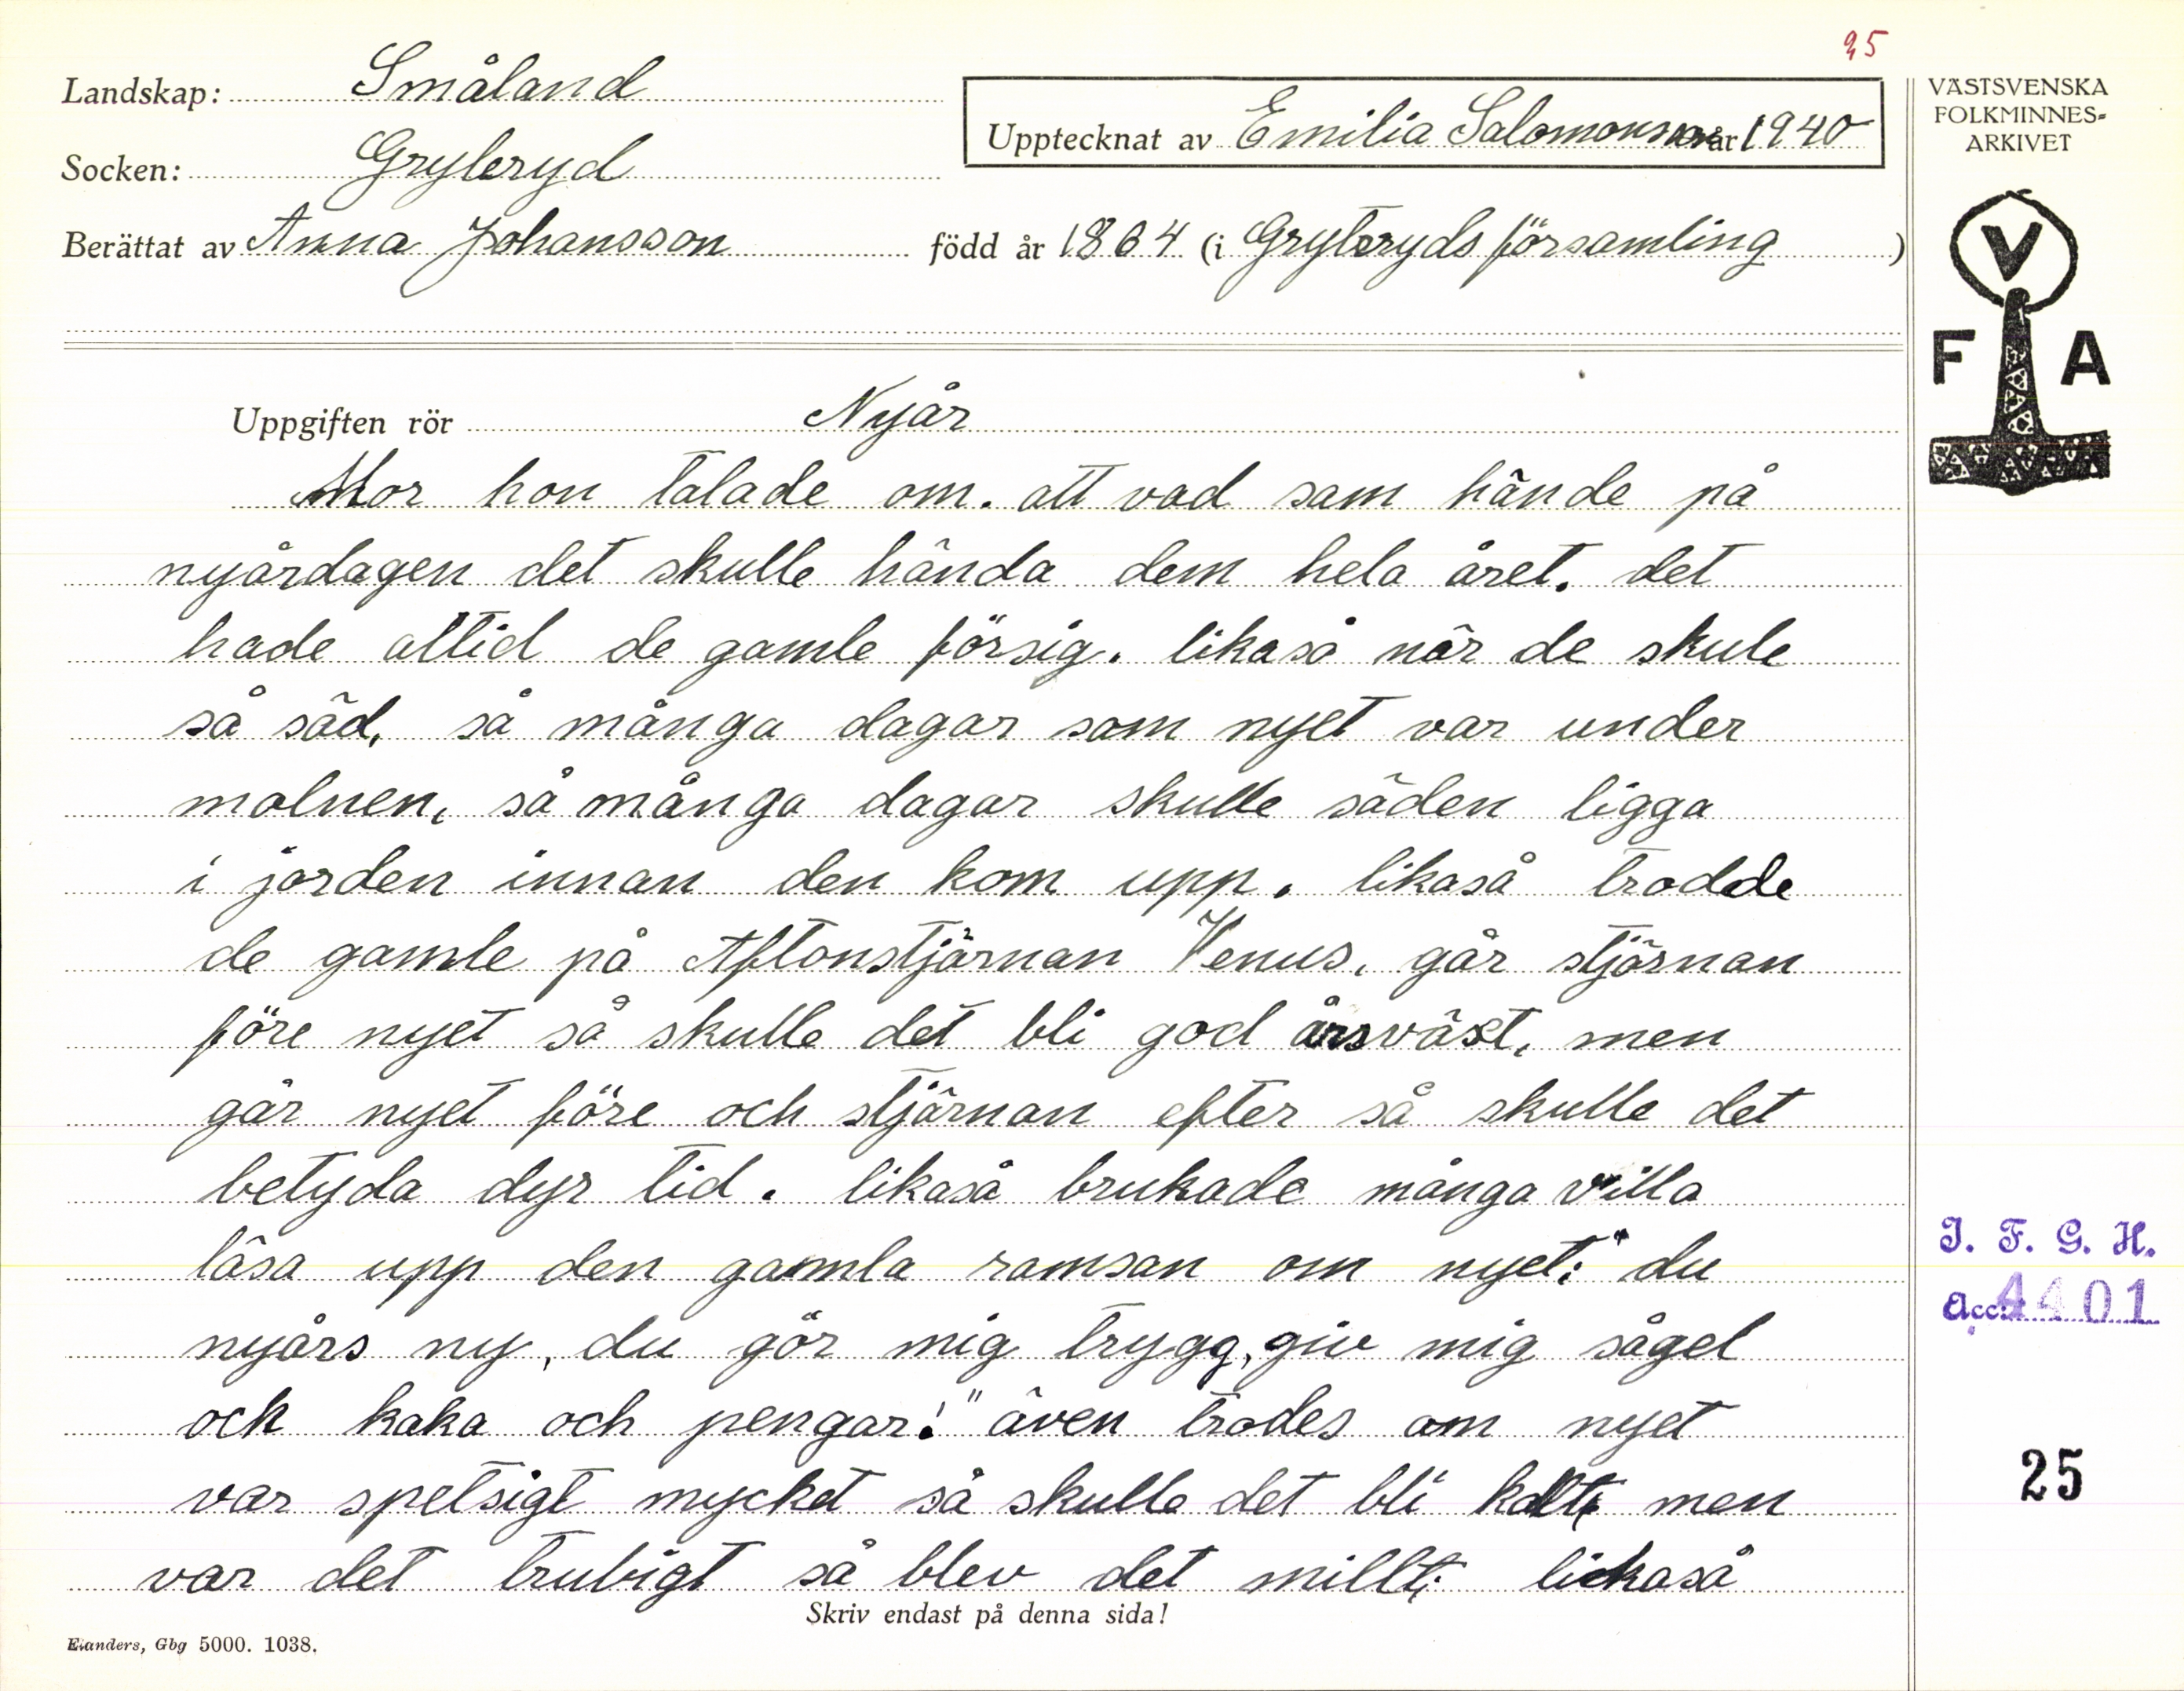 95
Landskap: Småland
Upptecknat av Emilia Salomonsson år 1940
VÄSTSVENSKA
FOLKMINNES-
ARKIVET
Socken: Gryteryd
Berättat av Anna Johansson född år 1864 (i Gryteryds församling )
V
F A
Uppgiften rör Nyår
Mor hon talade om. att vad som hände på
nyårdagen det skulle hända dem hela året. det
hade alltid de gamle försig. likaså när de skule
så säd, så många dagar som nyet var under
molnen, så många dagar skulle säden ligga
i jorden innan den kom upp. likaså trodde
de gamle på Aftonstjärnan Venus, går stjärnan
före nyet så skulle det bli god årsväxt, men
går nyet före och stjärnan efter så skulle det
betyda dyr tid. likaså brukade många villa
läsa upp den gamla ramsan om nyet: "du
nyårs ny, du gör mig trygg, giv mig sågel
och kaka och pengar!" även trodes om nyet
var spetsigt mycket så skulle det bli kallt, men
var det trubigt så blev det millt; likaså
Skriv endast på denna sida!
Elanders, Gbg 5000. 1038.
I. F. G. H.
Acc: 4401
25